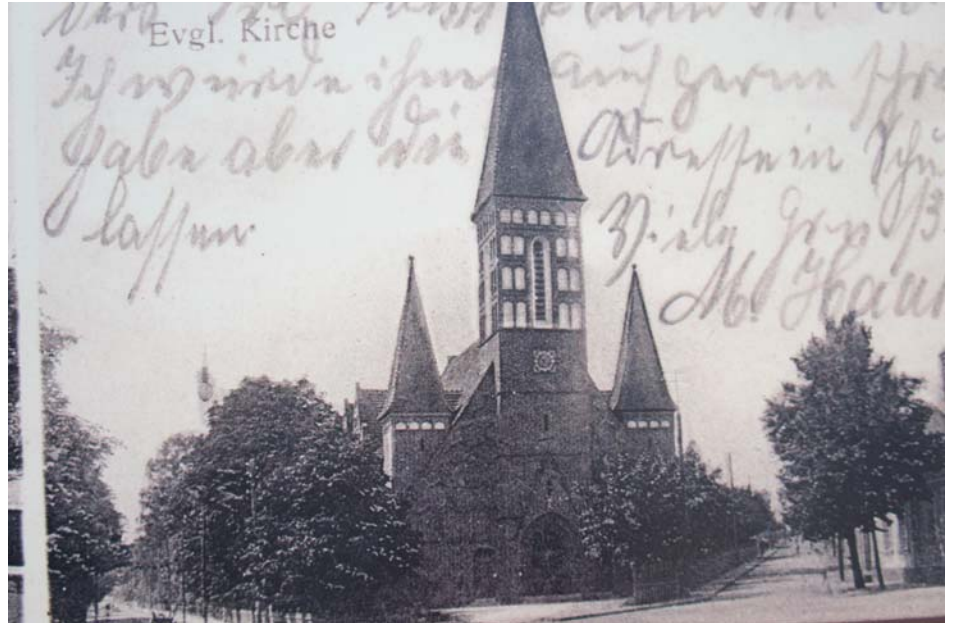 Evgl. Kirche
Ich würde ihnen auch gerne schre
habe aber die Adresse in Schu
lassen.
Viele Grüß
M. Hau